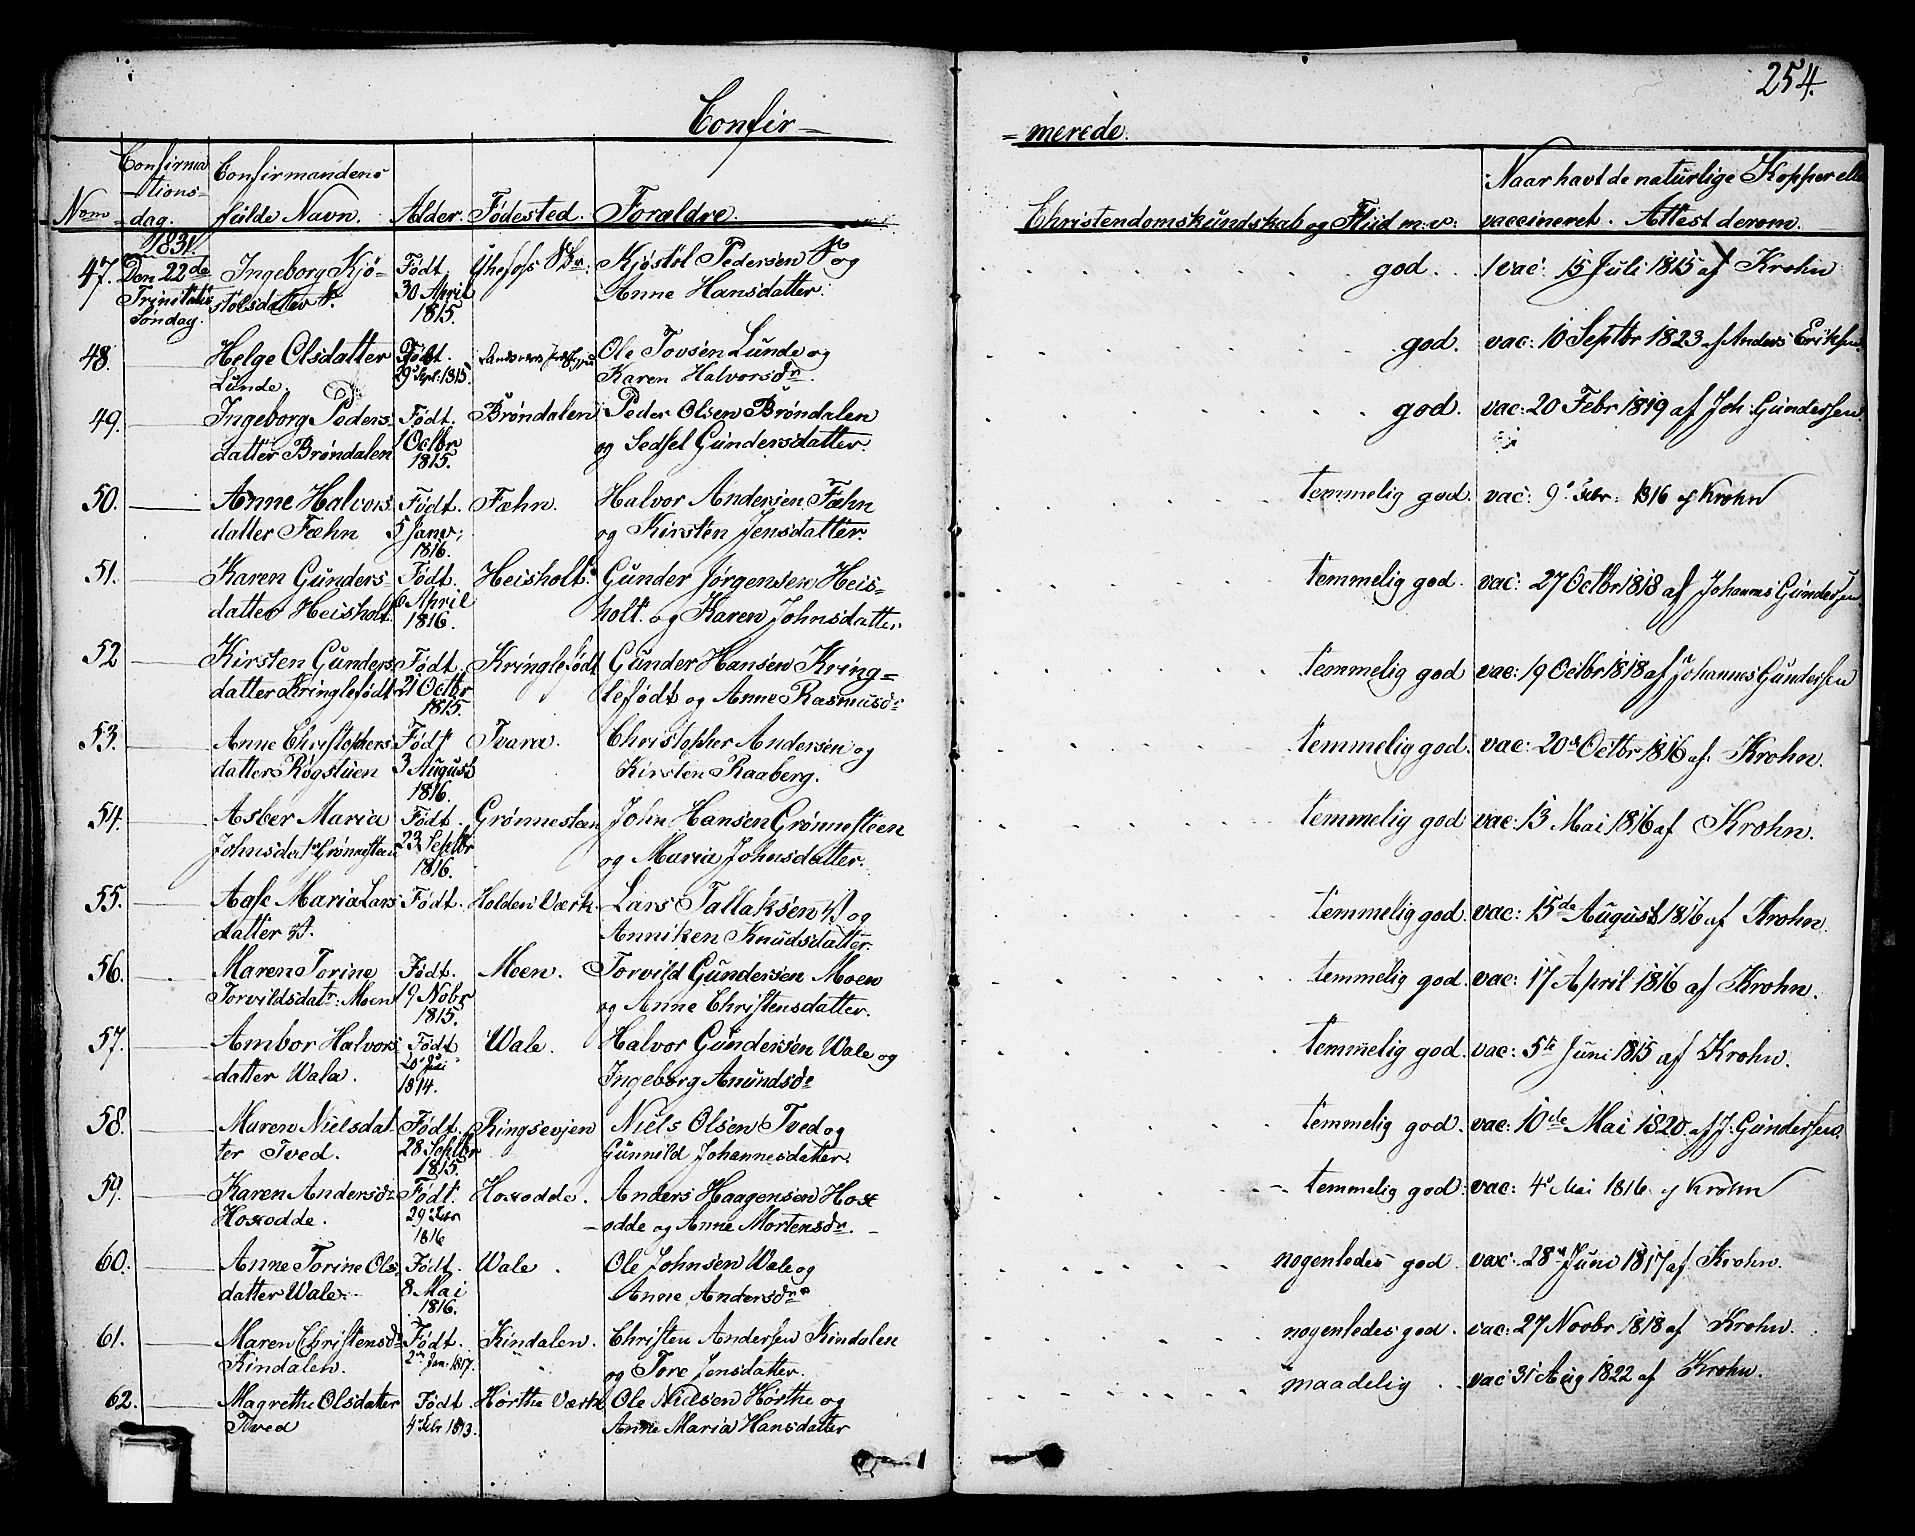 254.
Confir= =merede.
Nom= Confirmationsdag. Confirmandens fulde Navn. Alder. Fødested. Forældre. Christendomskundskab og Fliid m: v: Naar havt de naturlige Kopper elle vaccineret. Attest derom.
1831.
47. Den 22de Ingeborg Kjø= Født Kjøstol Pedersen og god. vac: 15 Juli 1815 af Krohn
Trinitatis stolsdatter 30 April Anne Hansdatter.
Søndag. 1815.
48. Helge Olsdatter Født. Ole Tovsen Lunde og god. vac: 10 Septbr 1823 af Anders Eriksen
Lunde. 9 Sept: 1815. Karen Halvorsdr.
49. Ingeborg Peders Født. Brøndalen Peder Olsen Brøndalen god. vac: 20 Febr 1819 af Joh: Gundersen
datter Brøndalen 1 Octbr og Sedsel Gundersdatter.
1815.
50. Anne Halvors Født. Fæhn. Halvor Andersen Fæhn temmelig god. vac: 9 Febr: 1816 af Krohn
datter Fæhn 5 Janv: og Kirsten Jensdatter.
1816.
51. Karen Gunders= Født. Heisholt. Gunder Jørgensen Heis= temmelig god. vac: 27 Octbr 1818 af Johannes Gundersen
datter Heisholt 6 April holt. og Karen Johnsdatter.
1816.
52 Kirsten Gunders Født. Kringlefødt Gunder Hansen Kring= temmelig god vac: 19 Octbr 1818 af Johannes Gundersen
datter Kringlefødt 21 Octbr lefødt og Anne Rasmusdr
1815.
53. Anne Christophers Født Tvara. Christopher Andersen og temmelig god. vac: 20de Octbr 1816 af Krohn.
datter Røgstuen 3 August Kirsten Raaberg.
1816.
54. Asber Maria Født. Grønnesteen John Hansen Grønnesteen temmelig god vac: 13 Mai 1816 af Krohn.
Johnsdatr Grønnesteen 23 Septbr og Maria Johnsdatter.
1816.
55. Aase Maria Lars Født. Holden Værk. Lars Tallaksen og temmelig god. vac: 15de August 1816 af Krohn.
datter Anniken Knudsdatter.
56. Maren Torine Født. Moen. Torvild Gundersen Moen temmelig god. vac: 17 April 1816 af Krohn.
Torvildsdatr: Moen 19 Nobr og Anne Christensdatter.
1815.
57. Ambor Halvors Født Wale. Halvor Gundersen Wale og temmelig god. vac: 5te Juni 1815 af Krohn.
datter Wala. Ingeborg Anundsdr
1814.
58. Maren Nielsdat Født. Ringsevjen Niels Olsen Tved og temmelig god. vac: 10de Mai 1820 af J: Gundersen.
ter Tved. 28 Septbr Gunnild Johannesdatter.
1815.
59. Karen Andersdr Født. Hoxodde. Anders Haagensen Hox temmelig god. vac: 4 Mai 1816 af Krohn
Hoxodde. 29 Febr odde og Anne Mortensdr.
1816
60. Anne Torine Ols= Født. Wale. Ole Johnsen Wale og nogenledes god. vac: 28 Juni 1817 af Krohn.
datter Wale. 8 Mai Anne Andersdr
1816.
61. Maren Christensdr Født. Kindalen. Christen Andersen Kindalen nogenledes god. vac: 27 Novbr 1818 af Krohn.
Kindalen. 2 Jan. 1817. og Tore Jensdatter.
62. Magrethe Olsdatter Født Hørthe Værk Ole Nielsen Hørthe og maadelig vac 31 Aug 1822 af Krohn.
Tved 4 Febr 1813. Anne Maria Hansdatter